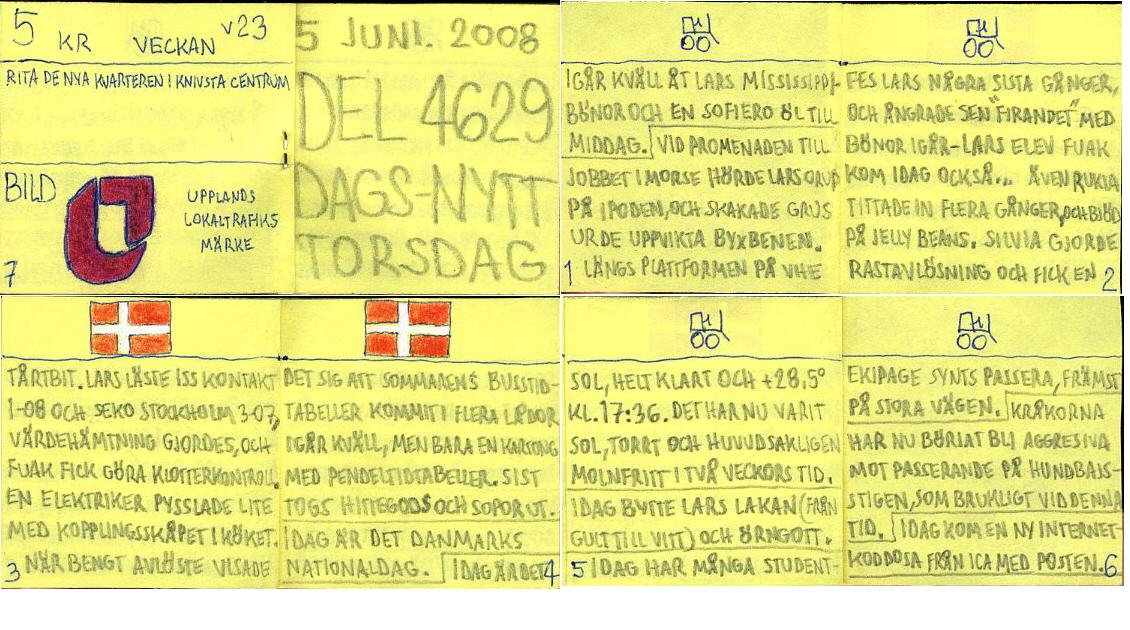 5 KR VECKAN V23
RITA DE NYA KVARTEREN I KNIVSTA CENTRUM
BILD
UPPLANDS
LOKALTRAFIKS
MÄRKE
7
5 JUNI. 2008
DEL 4629
DAGS-NYTT
TORSDAG
IGÅR KVÄLL ÅT LARS MISSISSIPPI-
BÖNOR OCH EN SOFIERO ÖL TILL
MIDDAG. VID PROMENADEN TILL
JOBBET I MORSE HÖRDE LARS ORUP
PÅ IPODEN, OCH SKAKADE GRUS
UR DE UPPVIKTA BYXBENEN.
1 LÄNGS PLATTFORMEN PÅ VHE
FES LARS NÅGRA SISTA GÅNGER,
OCH ÅNGRADE SEN "FIRANDET" MED
BÖNOR IGÅR-LARS ELEV FUAK
KOM IDAG OCKSÅ... ÄVEN RUKIA
TITTADE IN FLERA GÅNGER, OCH BJÖD
PÅ JELLY BEANS. SILVIA GJORDE
RASTAVLÖSNING OCH FICK EN 2
TÅRTBIT. LARS LÄSTE ISS KONTAKT
1-08 OCH SEKO STOCKHOLM 3-07,
VÄRDEHÄMTNING GJORDES, OCH
FUAK FICK GÖRA KLOTTERKONTROLL.
EN ELEKTRIKER PYSSLADE LITE
MED KOPPLINGSSKÅPET I KÖKET.
3 NÄR BENGT AVLÖSTE VISADE
DET SIG ATT SOMMARENS BUSSTID-
TABELLER KOMMIT I FLERA LÅDOR
IGÅR KVÄLL, MEN BARA EN KARTONG
MED PENDELTIDTABELLER. SIST
TOGS HITTEGODS OCH SOPOR UT.
IDAG ÄR DET DANMARKS
NATIONALDAG. IDAG ÄR DET 4
SOL, HELT KLART OCH +28,5°
KL. 17:36. DET HAR NU VARIT
SOL, TORRT OCH HUVUDSAKLIGEN
MOLNFRITT I TVÅ VECKORS TID.
IDAG BYTTE LARS LAKAN (FRÅN
GULT TILL VITT) OCH ÖRNGOTT.
5 IDAG HAR MÅNGA STUDENT-
EKIPAGE SYNTS PASSERA, FRÄMST
PÅ STORA VÄGEN. KRÅKORNA
HAR NU BÖRJAT BLI AGGRESIVA
MOT PASSERANDE PÅ HUNDBAJS-
STIGEN, SOM BRUKLIGT VID DENNA
TID. IDAG KOM EN NY INTERNET-
KODDOSA FRÅN ICA MED POSTEN. 6